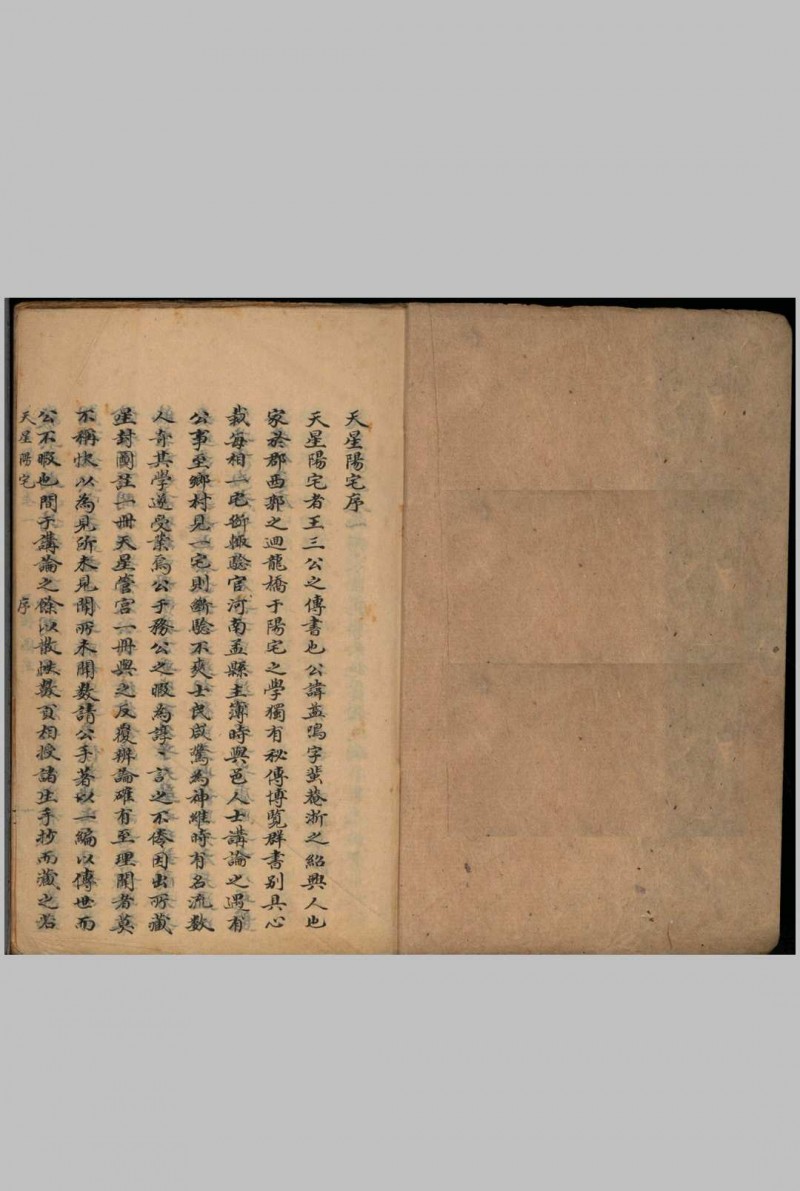 天星陽宅序
天星陽宅者王三公之傳書也公諱盉鳴字蜚菴浙之紹興人也
家於郡西郭之迴龍橋于陽宅之學獨有秘傳博覽群書別具心
裁每相一宅御輙驗官河南孟縣主簿時與邑人士講論之遇有
公事至鄉村見一宅則斷驗不爽士民咸驚為神維時有名流数
人奇其學遂受業焉公于務公之暇為諄〻言之不倦因出所藏
星封圖註一冊天星管宮一冊與之反覆辨論確有至理聞者莫
不稱快以為見所未見聞所未聞数請公手著以一編以傳世而
公不暇也間于講論之餘以散帙數頁相授諸生手抄而藏之若
天星陽宅 序